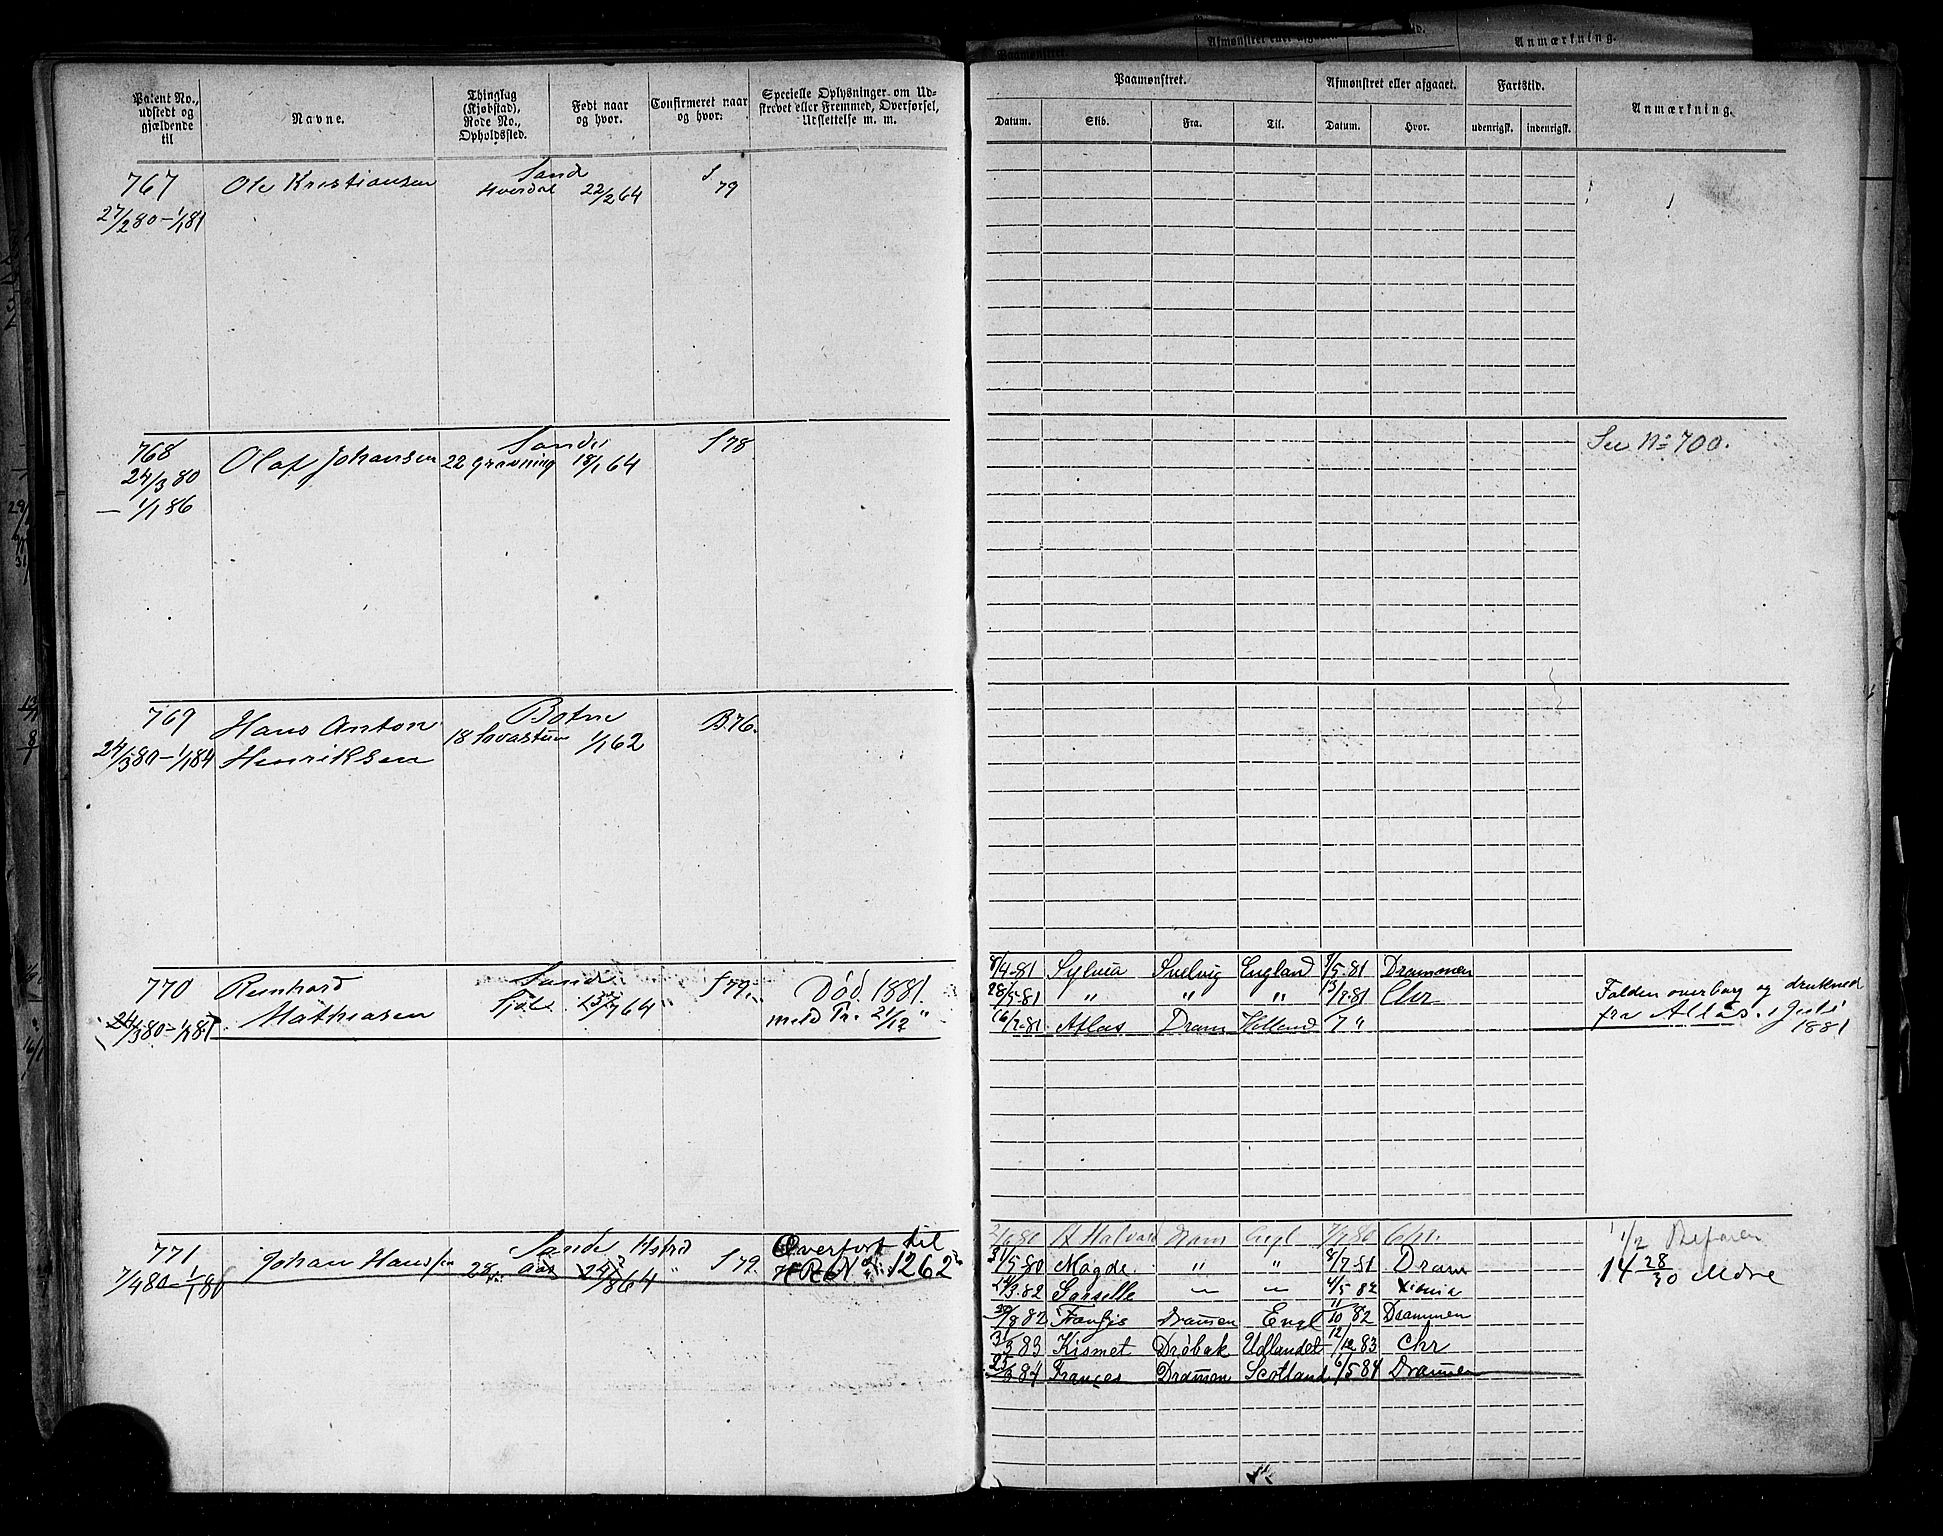 Patent No., udstedt og gjældende til
Navne.
Thinglag (Kjøbstad), Rode No., Opholdssted.
Født naar og hvor.
Confirmeret naar og hvor:
Specielle Oplysninger om Udskrevet eller Fremmed, Overførsel, Udslettelse m. m.
Afmønstret eller afgaaet
Anmærkning.
Paamønstret.
Afmønstret eller afgaaet.
Fartstid.
Anmærkning.
Datum.
Skib.
Fra.
Til.
Datum.
Hvor.
udenrigsk.
indenrigsk.
767 Ole Kristiansen Sand S
27/2 80 — 1/1 81 Hverdal 22/2 64 79
768 Olaf Johansen Sande S 78 See No 700.
24/3 80 22 Gravning 18/1 64
— 1/1 86
769 Hans Anton Botne B. 76.
24/3 80 — 1/1 84 Henriksen 18 1/1 62
770 Reinhard Sand S 79. Død 1881. 8/4-81 Sylvia Svelvig England 9/5-81 Drammen
24/3 80 — 1/1 85 Mathiasen 64 meld 21/12 " 28/5-81 " " " 13/7-81 Chr Falden overborg og drukned
16/7-81 Atlas Dram Holland /7 " fra Atlas. i Juli
1881
771 Johan Hanssen Sande S 79. Overført til 80 Dram Engl 80 Chr.
7/4 80 — 1/1 86 28 Aas 24/8 64 1262 31/5-80 Magde. " " 8/7-81 Dram
14 28/30 Mdre
24/3.82 " " 4/5-82 Xiania
30/8 82 Frances Dramen Engl 11/10 82 Drammen
31/3 83 Kismet Drøbak Udlandet 12/12 83 Chr
25/3 84 Frances Dramen Scotland 6/5 84 Dramen